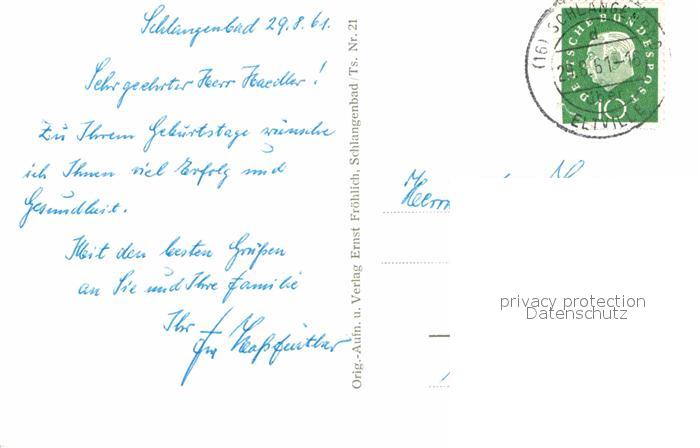 Schlangenbad 29.8.61.
Sehr geehrter Herr Haedler!
Zu Ihrem Geburtstage wünsche
ich Ihnen viel Erfolg und
Gesundheit.
Mit den besten Grüßen
an Sie und Ihre Familie
Ihr
Orig.-Aufn. u. Verlag Ernst Fröhlich, Schlangenbad/Ts. Nr. 21
(16) SCHLANGENBAD
d
29.8.61-16
ELTVILLE
DEUTSCHE BUNDESPOST
10
Herrn
privacy protection
Datenschutz